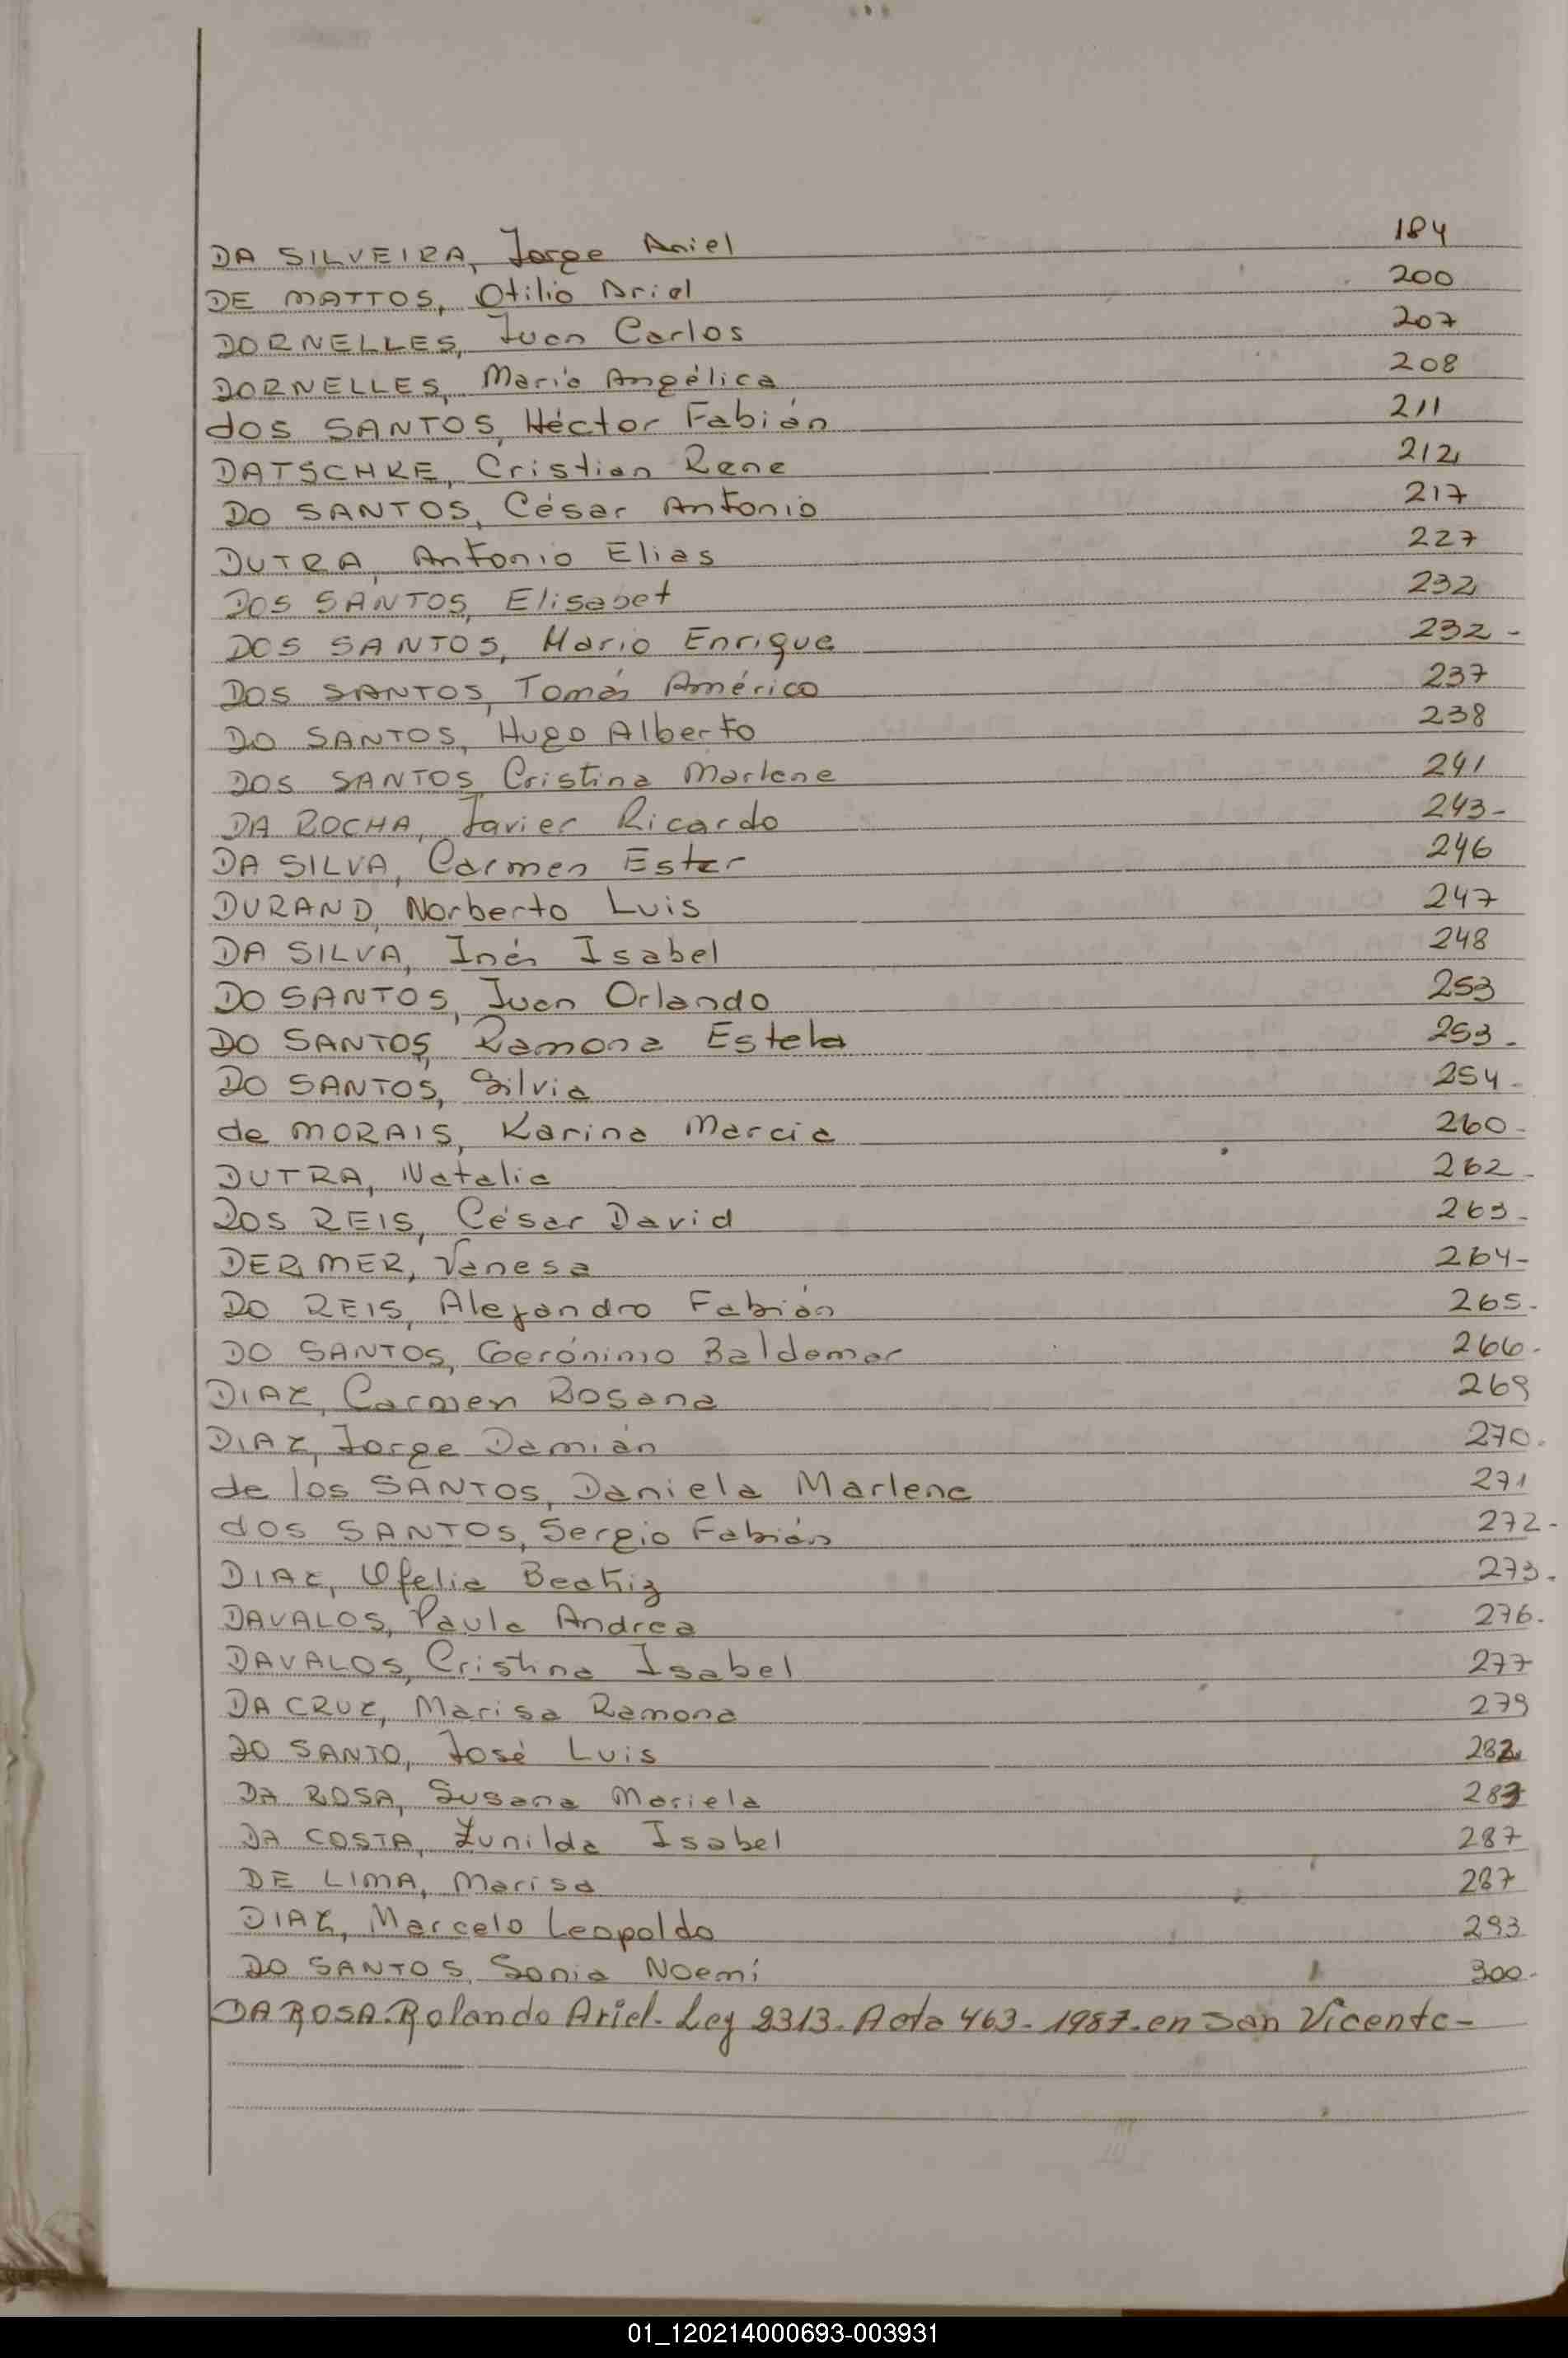 DA SILVEIRA, Jorge Ariel 184
DE MATTOS, Otilio Ariel 200
DORNELLES, Juan Carlos 207
DORNELLES, María Angélica 208
dos SANTOS, Héctor Fabián 211
DATSCHKE, Cristian Rene 212
DO SANTOS, César Antonio 217
DUTRA, Antonio Elias 227
DOS SANTOS, Elisabet 232
DOS SANTOS, Mario Enrique 232-
DOS SANTOS, Tomás Américo 237
DO SANTOS, Hugo Alberto 238
DOS SANTOS, Cristina Marlene 241
DA ROCHA, Javier Ricardo 243-
DA SILVA, Carmen Ester 246
DURAND, Norberto Luis 247
DA SILVA, Inés Isabel 248
DO SANTOS, Juan Orlando 253
DO SANTOS, Ramona Estela 253-
DO SANTOS, Silvia 254-
de MORAIS, Karina Marcia 260-
DUTRA, Natalia 262-
DOS REIS, César David 263-
DERMER, Vanesa 264-
DO REIS, Alejandro Fabián 265-
DO SANTOS, Gerónimo Baldemar 266-
DIAZ, Carmen Rosana 269
DIAZ, Jorge Damián 270-
de los SANTOS, Daniela Marlene 271
dos SANTOS, Sergio Fabián 272-
DIAZ, Ofelia Beatriz 273-
DAVALOS, Paula Andrea 276-
DAVALOS, Cristina Isabel 277
DA CRUZ, Marisa Ramona 279
DO SANTO, José Luis 282
DA ROSA, Susana Mariela 283
DA COSTA, Zunilda Isabel 287
DE LIMA, Marisa 287
DIAZ, Marcelo Leopoldo 293
DO SANTOS, Sonia Noemí 300-
DA ROSA. Rolando Ariel- Ley 2313- Acta 463- 1987- en San Vicente-
01_120214000693-003931